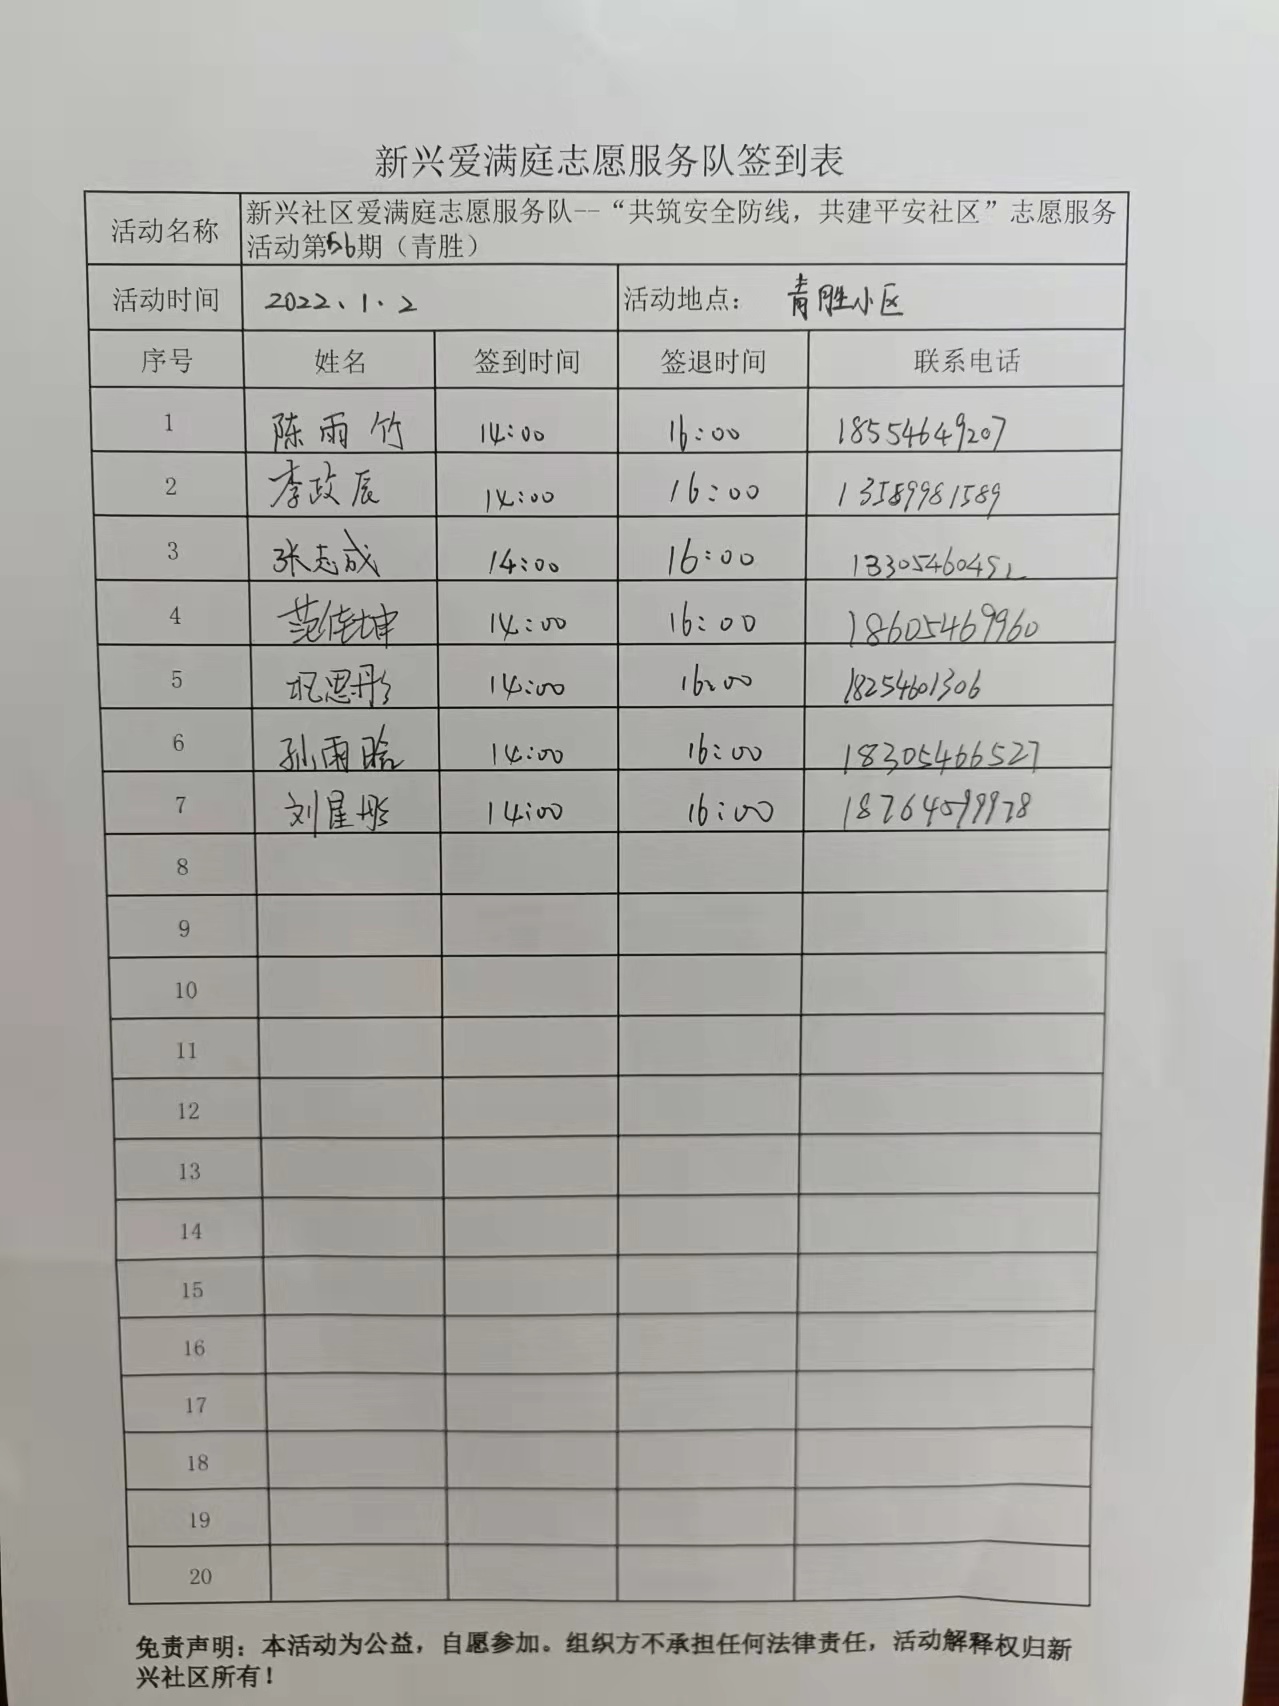 新兴爱满庭志愿服务队签到表
活动名称 新兴社区爱满庭志愿服务队--“共筑安全防线，共建平安社区”志愿服务
活动第56期（青胜）
活动时间 2022、1、2 活动地点： 青胜小区
序号 姓名 签到时间 签退时间 联系电话
1 陈雨竹 14:00 16:00 18554649207
2 李政辰 14:00 16:00 13589981589
3 张志成 14:00 16:00
4 范佳坤 14:00 16:00 18605469960
5 思彤 14:00 16:00 18254601306
6 孙雨晗 14:00 16:00 18305466527
7 刘星彤 14:00 16:00
8
9
10
11
12
13
14
15
16
17
18
19
20
免责声明：本活动为公益，自愿参加。组织方不承担任何法律责任，活动解释权归新
兴社区所有！